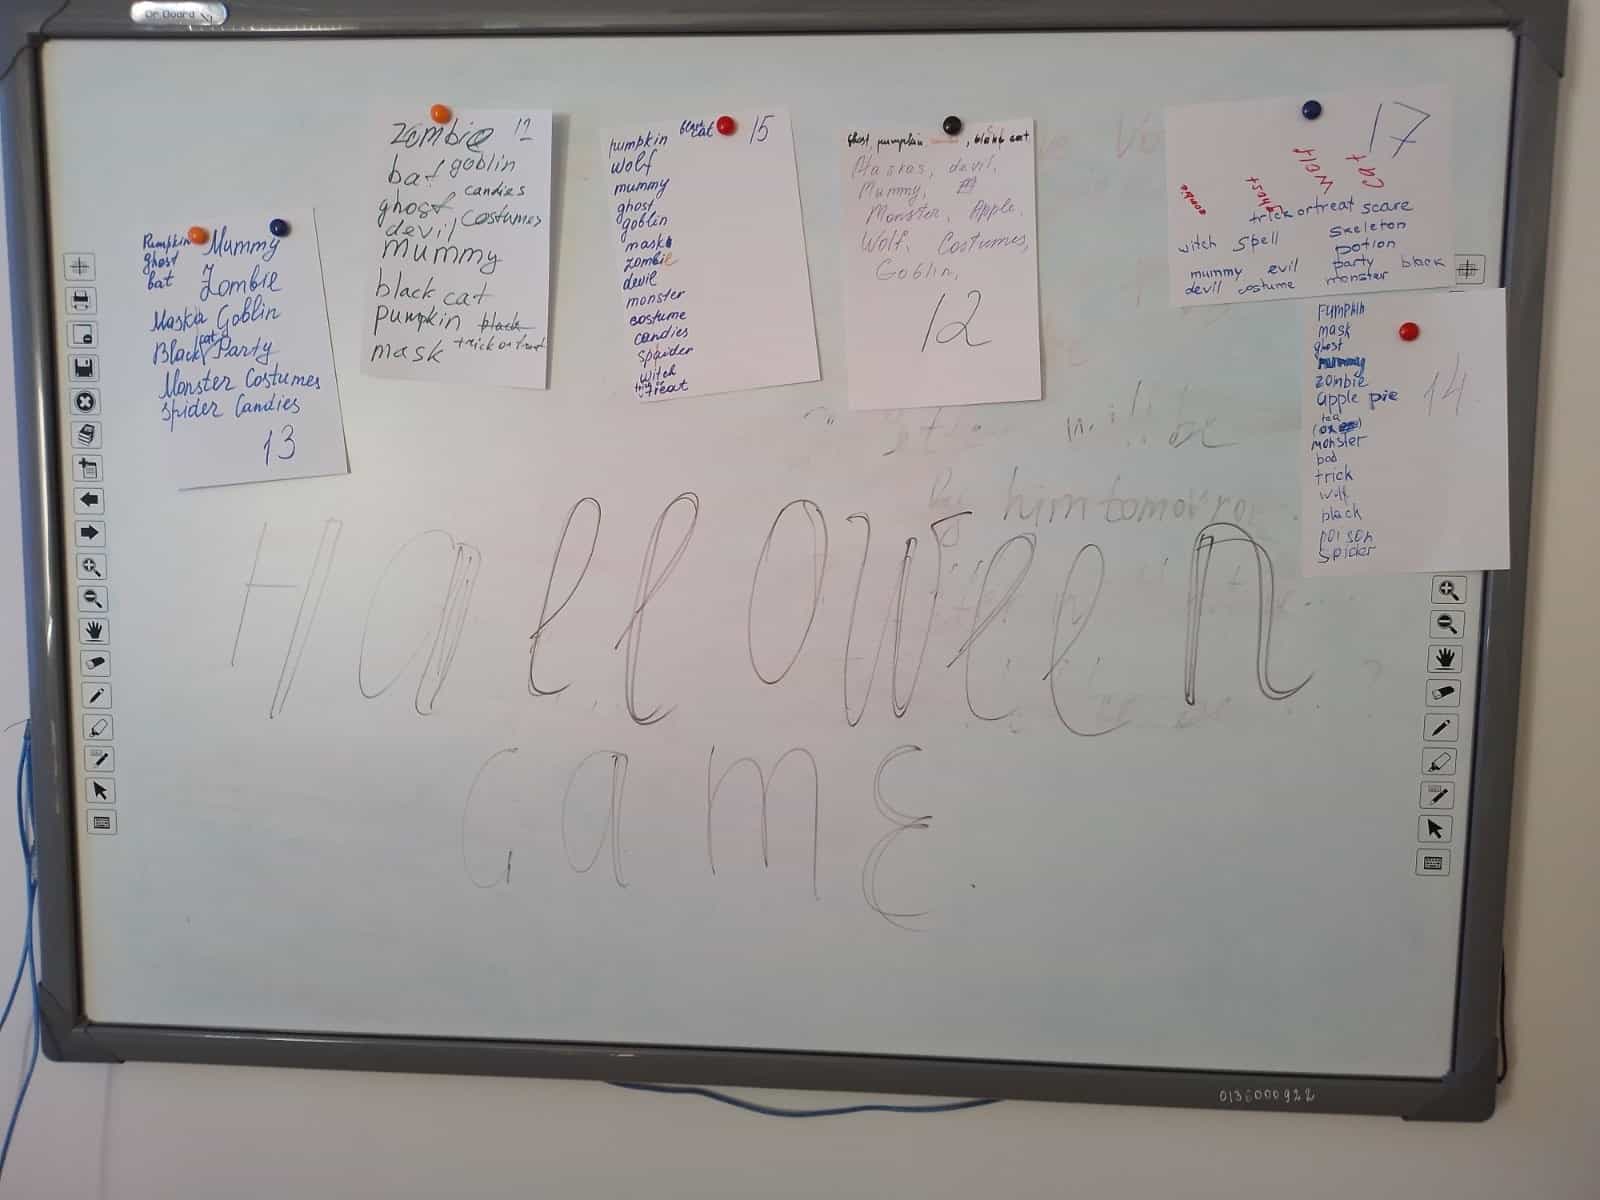 Dr. Board
Pumpkin Mummy
ghost
bat Zombie
Maska Goblin
Black cat Party
Monster Costumes
Spider Candies
13
zombie 12
bat goblin
candies
ghost, costumes
devil
mummy
black cat
pumpkin black
mask trick or treat
pumpkin black cat 15
wolf
mummy
ghost
goblin
mask
zombie
devil
monster
costume
candies
spaider
witch
trick or
treat
Ghost, pumpkin, , black cat
Maskas, devil,
Mummy,
Monster, Apple,
Wolf, Costumes,
Goblin,
12
17
zombie ghost Cat
trick or treat scare
witch spell skeleton
potion
mummy evil party black
devil costume monster
PUMPKIN
mask
ghost
mummy
zombie 14
apple pie
tea
monster
bad
trick
wolf
black
poison
spider
will be
him tomorrow
HallOWeen
GamE
0136000922